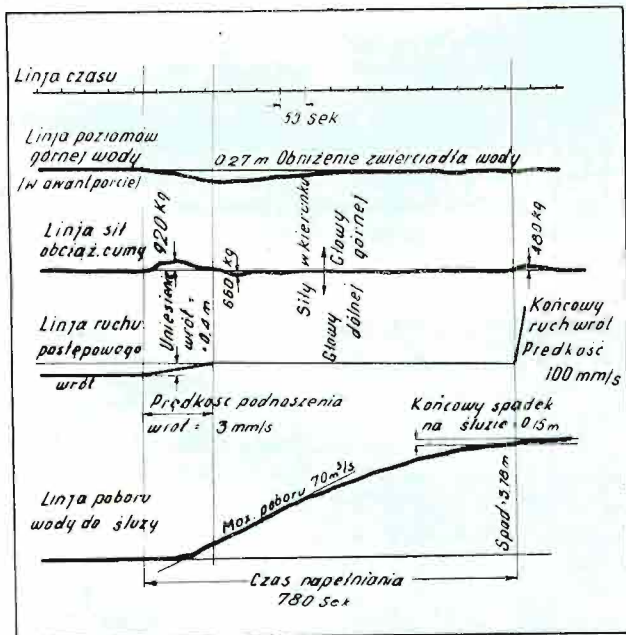 Linja czasu
50 sek
Linja poziomów
górnej wody
(w awantporcie)
0.27 m Obniżenie zwierciadła wody
Linja sił
obciąż. cumy
920 kg
660 kg
Siły w kierunku
Głowy górnej
Głowy dólnej
480 kg
Linja ruchu
postępowego
wrót
Uniesienie
wrót =
0,4 m
Końcowy
ruch wrót
Prędkość
100 mm/s
Prędkość podnoszenia
wrót = 3 mm/s
Końcowy spadek
na śluzie = 0,15 m
Linja poboru
wody do śluzy
Max. poboru 70 m³/s
Spad = 3.78 m
Czas napełniania
780 sek